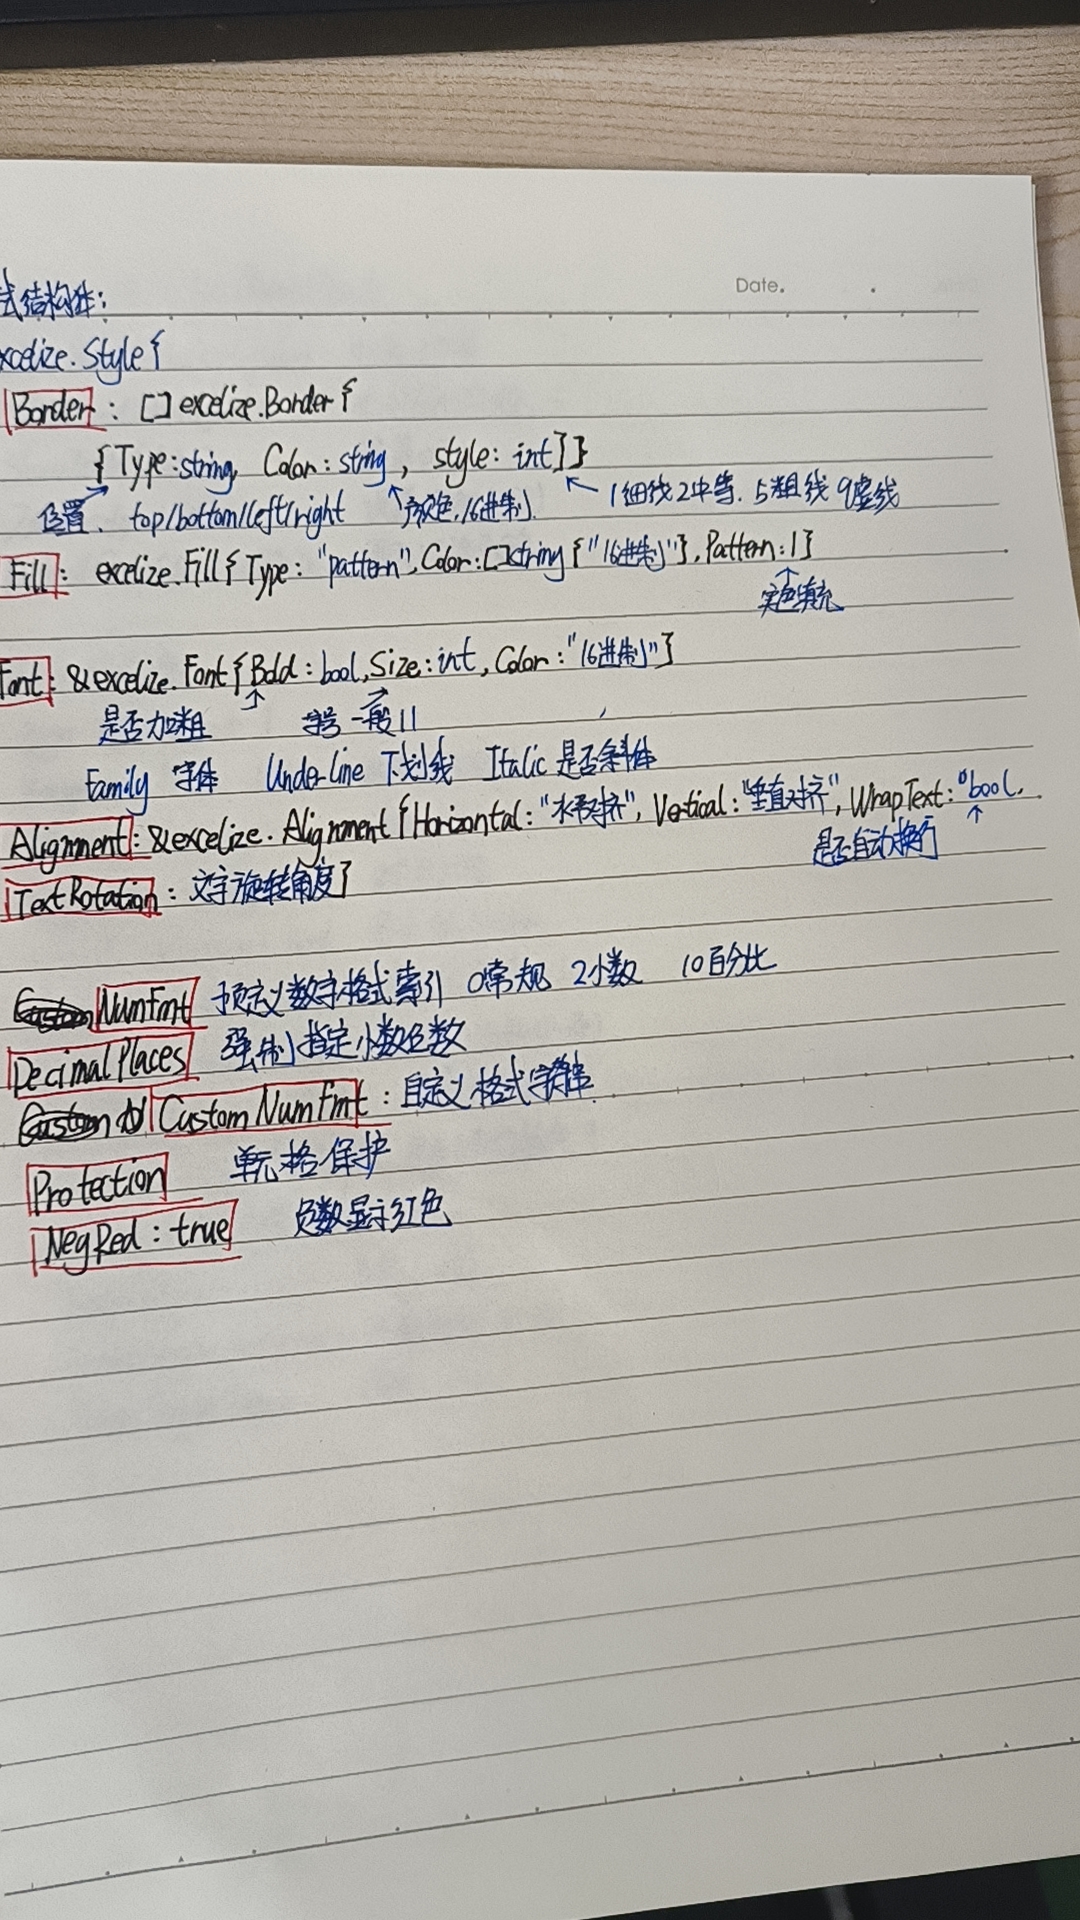 Date.
式结构体:
xcelize.Style{
Border: []excelize.Border{
{Type:string, Color:string, style:int}}
位置. top/bottom/left/right 颜色.16进制. 1细线2中等.5粗线9虚线
Fill: excelize.Fill{Type:"pattern",Color:[]string{"16进制"},Pattern:1}
实色填充
Font: &excelize.Font{Bold:bool,Size:int,Color:"16进制"}
是否加粗 字号一般11
Family 字体 Underline 下划线 Italic 是否斜体
Alignment: &excelize.Alignment{Horizontal:"水平对齐",Vertical:"垂直对齐",WrapText:bool.
是否自动换行
TextRotation: 文字旋转角度}
NumFmt 预定义数字格式索引 0常规 2小数 10百分比
DecimalPlaces 强制指定小数位数
CustomNumFmt: 自定义格式字符串.
Protection 单元格保护
NegRed: true 负数显示红色